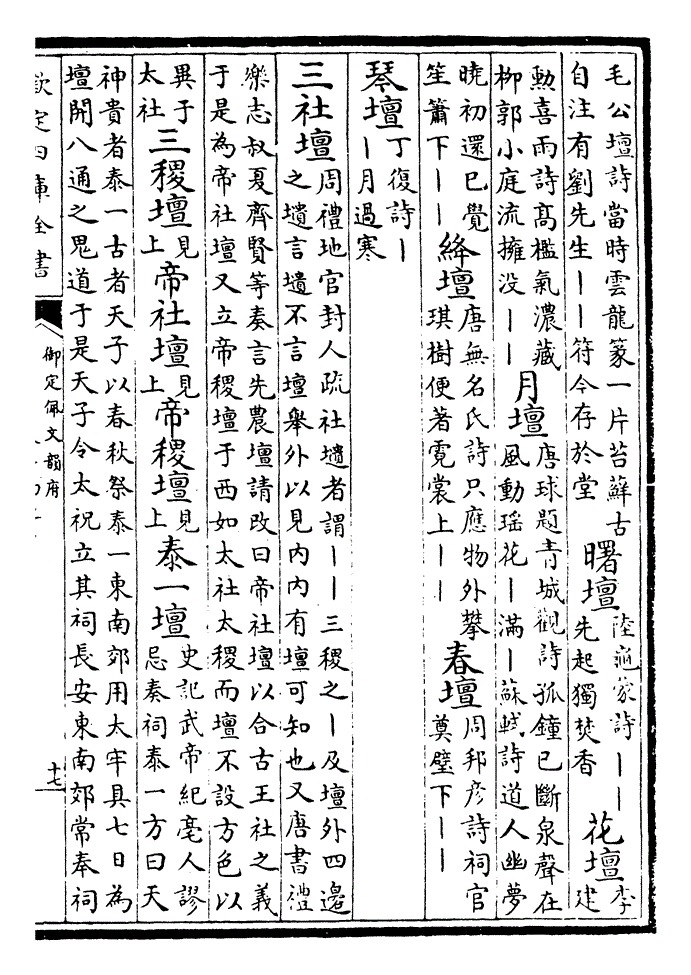 毛公壇詩當時雲龍篆一片苔蘚古自注有劉先生丨丨符今存於堂曙壇陸龜蒙詩丨丨先起獨焚香花壇李建
勲喜雨詩高檻氣濃藏柳郭小庭流擁没丨丨月壇唐球題青城觀詩孤鐘已斷泉聲在風動瑶花丨滿丨蘇軾詩道人幽夢
曉初還已覺笙簫下丨丨絳壇唐無名氏詩只應物外攀琪樹便著霓裳上丨丨春壇周邦彦詩祠官奠璧下丨丨
琴壇丁復詩丨丨月過寒
三社壇周禮地官封人疏社壝者謂丨丨三稷之丨及壇外四邊之壝言壝不言壇舉外以見内内有壇可知也又唐書禮
樂志叔夏齊賢等奏言先農壇請改曰帝社壇以合古王社之義于是為帝社壇又立帝稷壇于西如太社太稷而壇不設方色以
異于太社三稷壇見上帝社壇見上帝稷壇見上泰一壇史記武帝紀亳人謬忌奏祠泰一方曰天
神貴者泰一古者天子以春秋祭泰一東南郊用太牢具七日為壇開八通之鬼道于是天子令太祝立其祠長安東南郊常奉祠
欽定四庫全書
御定佩文韻府
十七